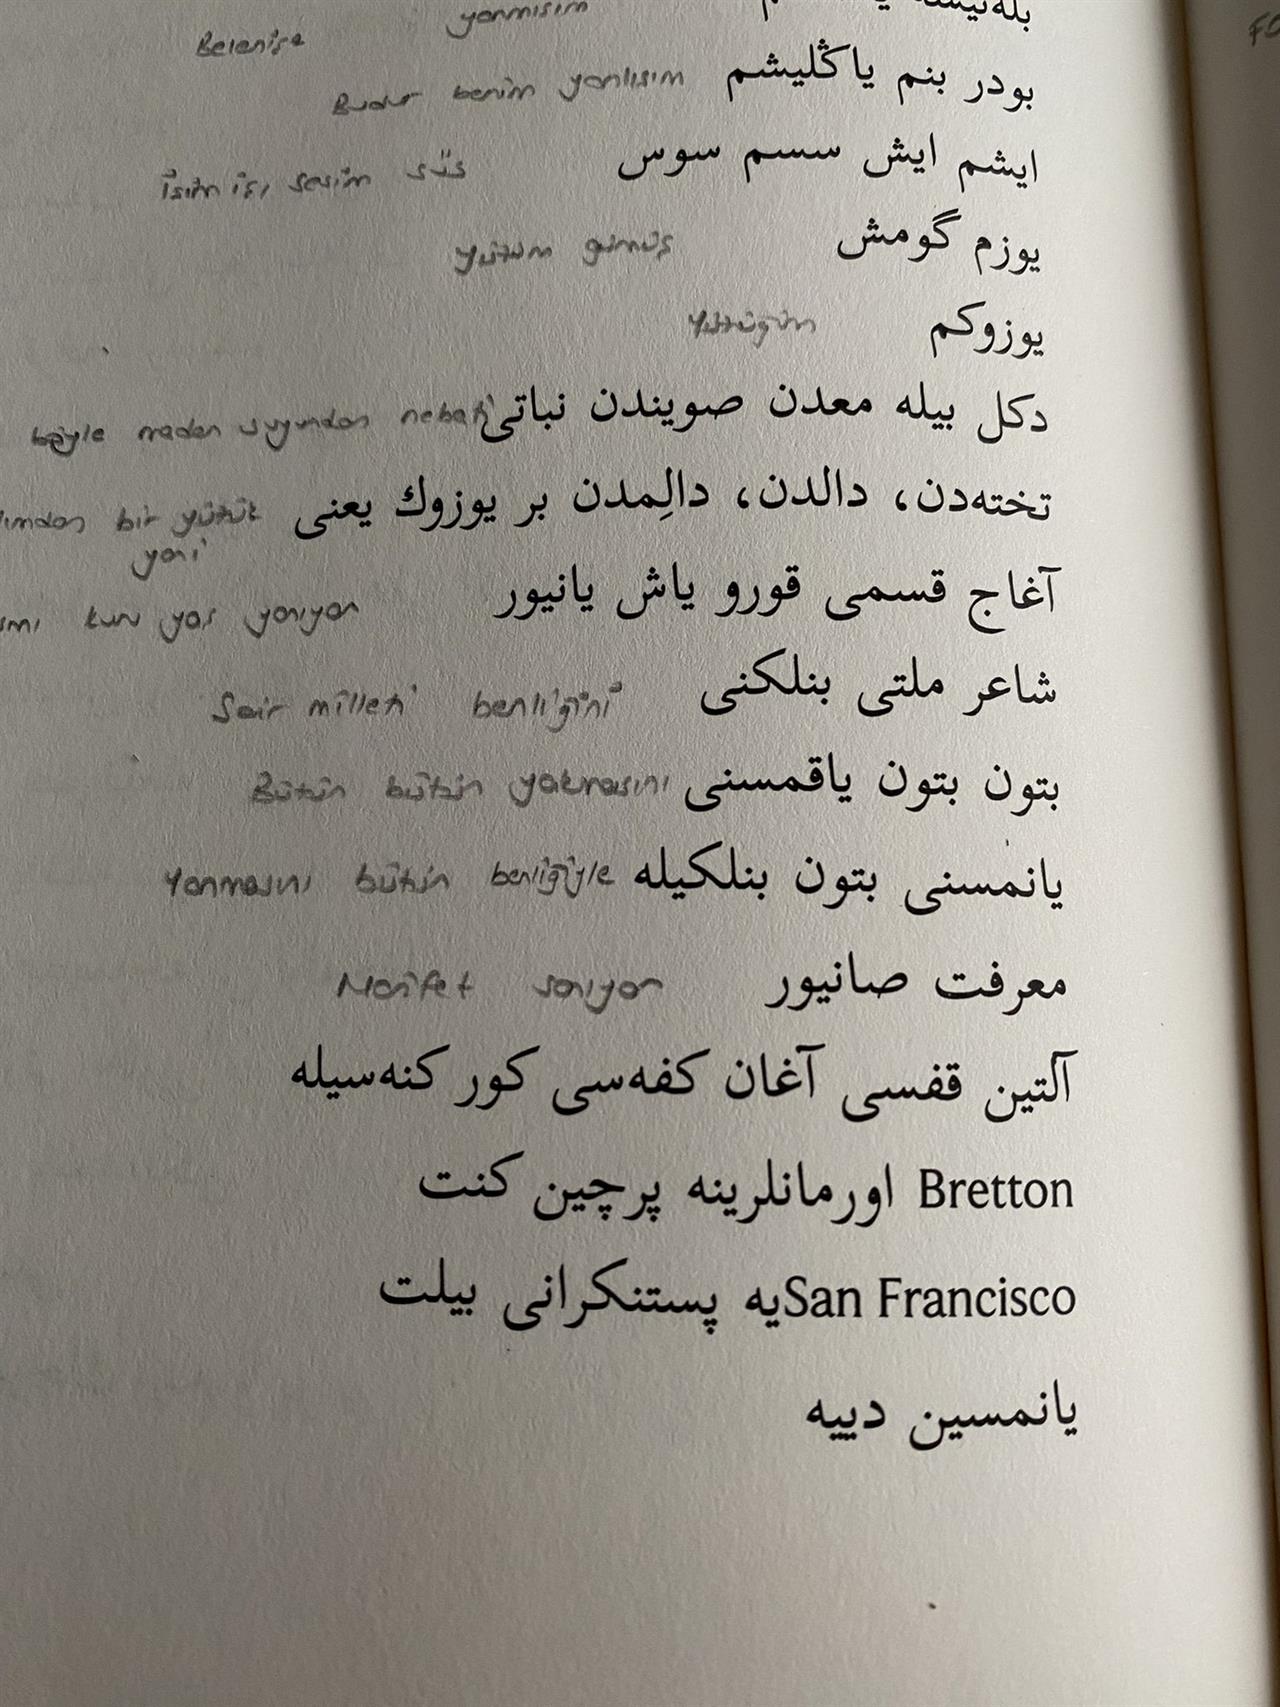 yanmışım
Belenişe
بودر بنم ياڭليشم
Budur benim yanlışım
ايشم ايش سسم سوس
İşim iş, sesim süs
يوزم گومش
yüzüm gümüş
يوزوكم
Yüzüğüm
دكل بيله معدن صويندن نباتى
böyle maden suyundan nebati
تخته‌دن، دالدن، دالِمدن بر يوزوك يعنى
ımdan bir yüzük
yani
آغاج قسمى قورو ياش يانيور
smı kuru yaş yanıyor
شاعر ملتى بنلكنى
Şair milleti benliğini
بتون بتون ياقمسنى
Bütün bütün yakmasını
يانمسنى بتون بنلكيله
Yanmasını bütün benliğiyle
معرفت صانيور
Marifet sanıyor
آلتين قفسى آغان كفه‌سى كور كنه‌سيله
Bretton اورمانلرينه پرچين كنت
San Franciscoيه پستنكرانى بيلت
يانمسين دييه